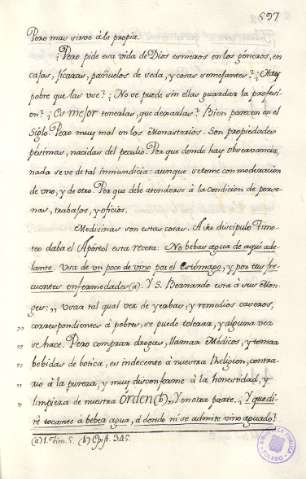 597
Pero mas vamos à lo propio.
¿Pero pide esa vida de Dios esmeros en los géneros, en
cajas, jicaras, pañuelos de seda, y cosas semejantes? ¿Hay
pobre que las use? ¿No ve puede sin ellas guardar la profesi-
on? ¿Es mejor tenerlas, que dexarlas? Bien parecen en el
siglo. Pero muy mal en los Monasterios. Son propiedades
pésimas, nacidas del peculio. Por que donde hay observancia,
nada se ve de tal immundicia: aunque se tome con moderacion
de uno, y de otro. Por que debe atenderse à la condicion de perso-
nas, trabajos, y oficios.
Medicinas son estas cosas. A su discipulo Timo-
teo daba el Apóstol esta receta: No bebas agua de aqui ade-
lante. Usa de un poco de vino por el estómago, y por tus fre-
cuentes enfermedades (a). Y S. Bernardo esta à sus Mon-
ges: „ Usar tal qual vez de yerbas, y remedios caseros,
„ correspondientes à pobres, se puede tolerar, y alguna vez
„ se hace. Pero comprar drogas, llamar Médicos, y tomar
„ bebidas de botica, es indecente à nuestra Religion, contra-
„ rio à la pureza, y muy disconforme à la honestidad, y
„ limpieza de nuestra Orden (b)„ Y en otra parte: ¿Y que di-
ré tocante à beber agua, à donde ni se admite vino aguado?
(a) 1. Tim. 5. (b) Epist. 345.